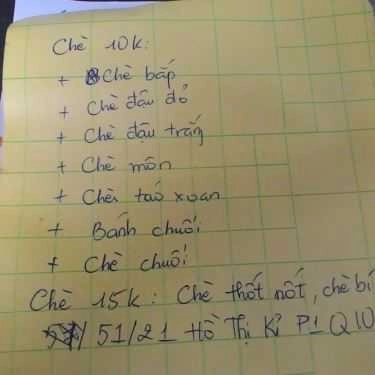 Chè 10k:
+ Chè bắp
+ Chè đậu đỏ
+ Chè đậu trắng
+ Chè môn
+ Chè táo xoan
+ Bánh chuối
+ Chè chuối
Chè 15k: Chè thốt nốt, chè bí
51/21 Hồ Thị Kỉ P1 Q10